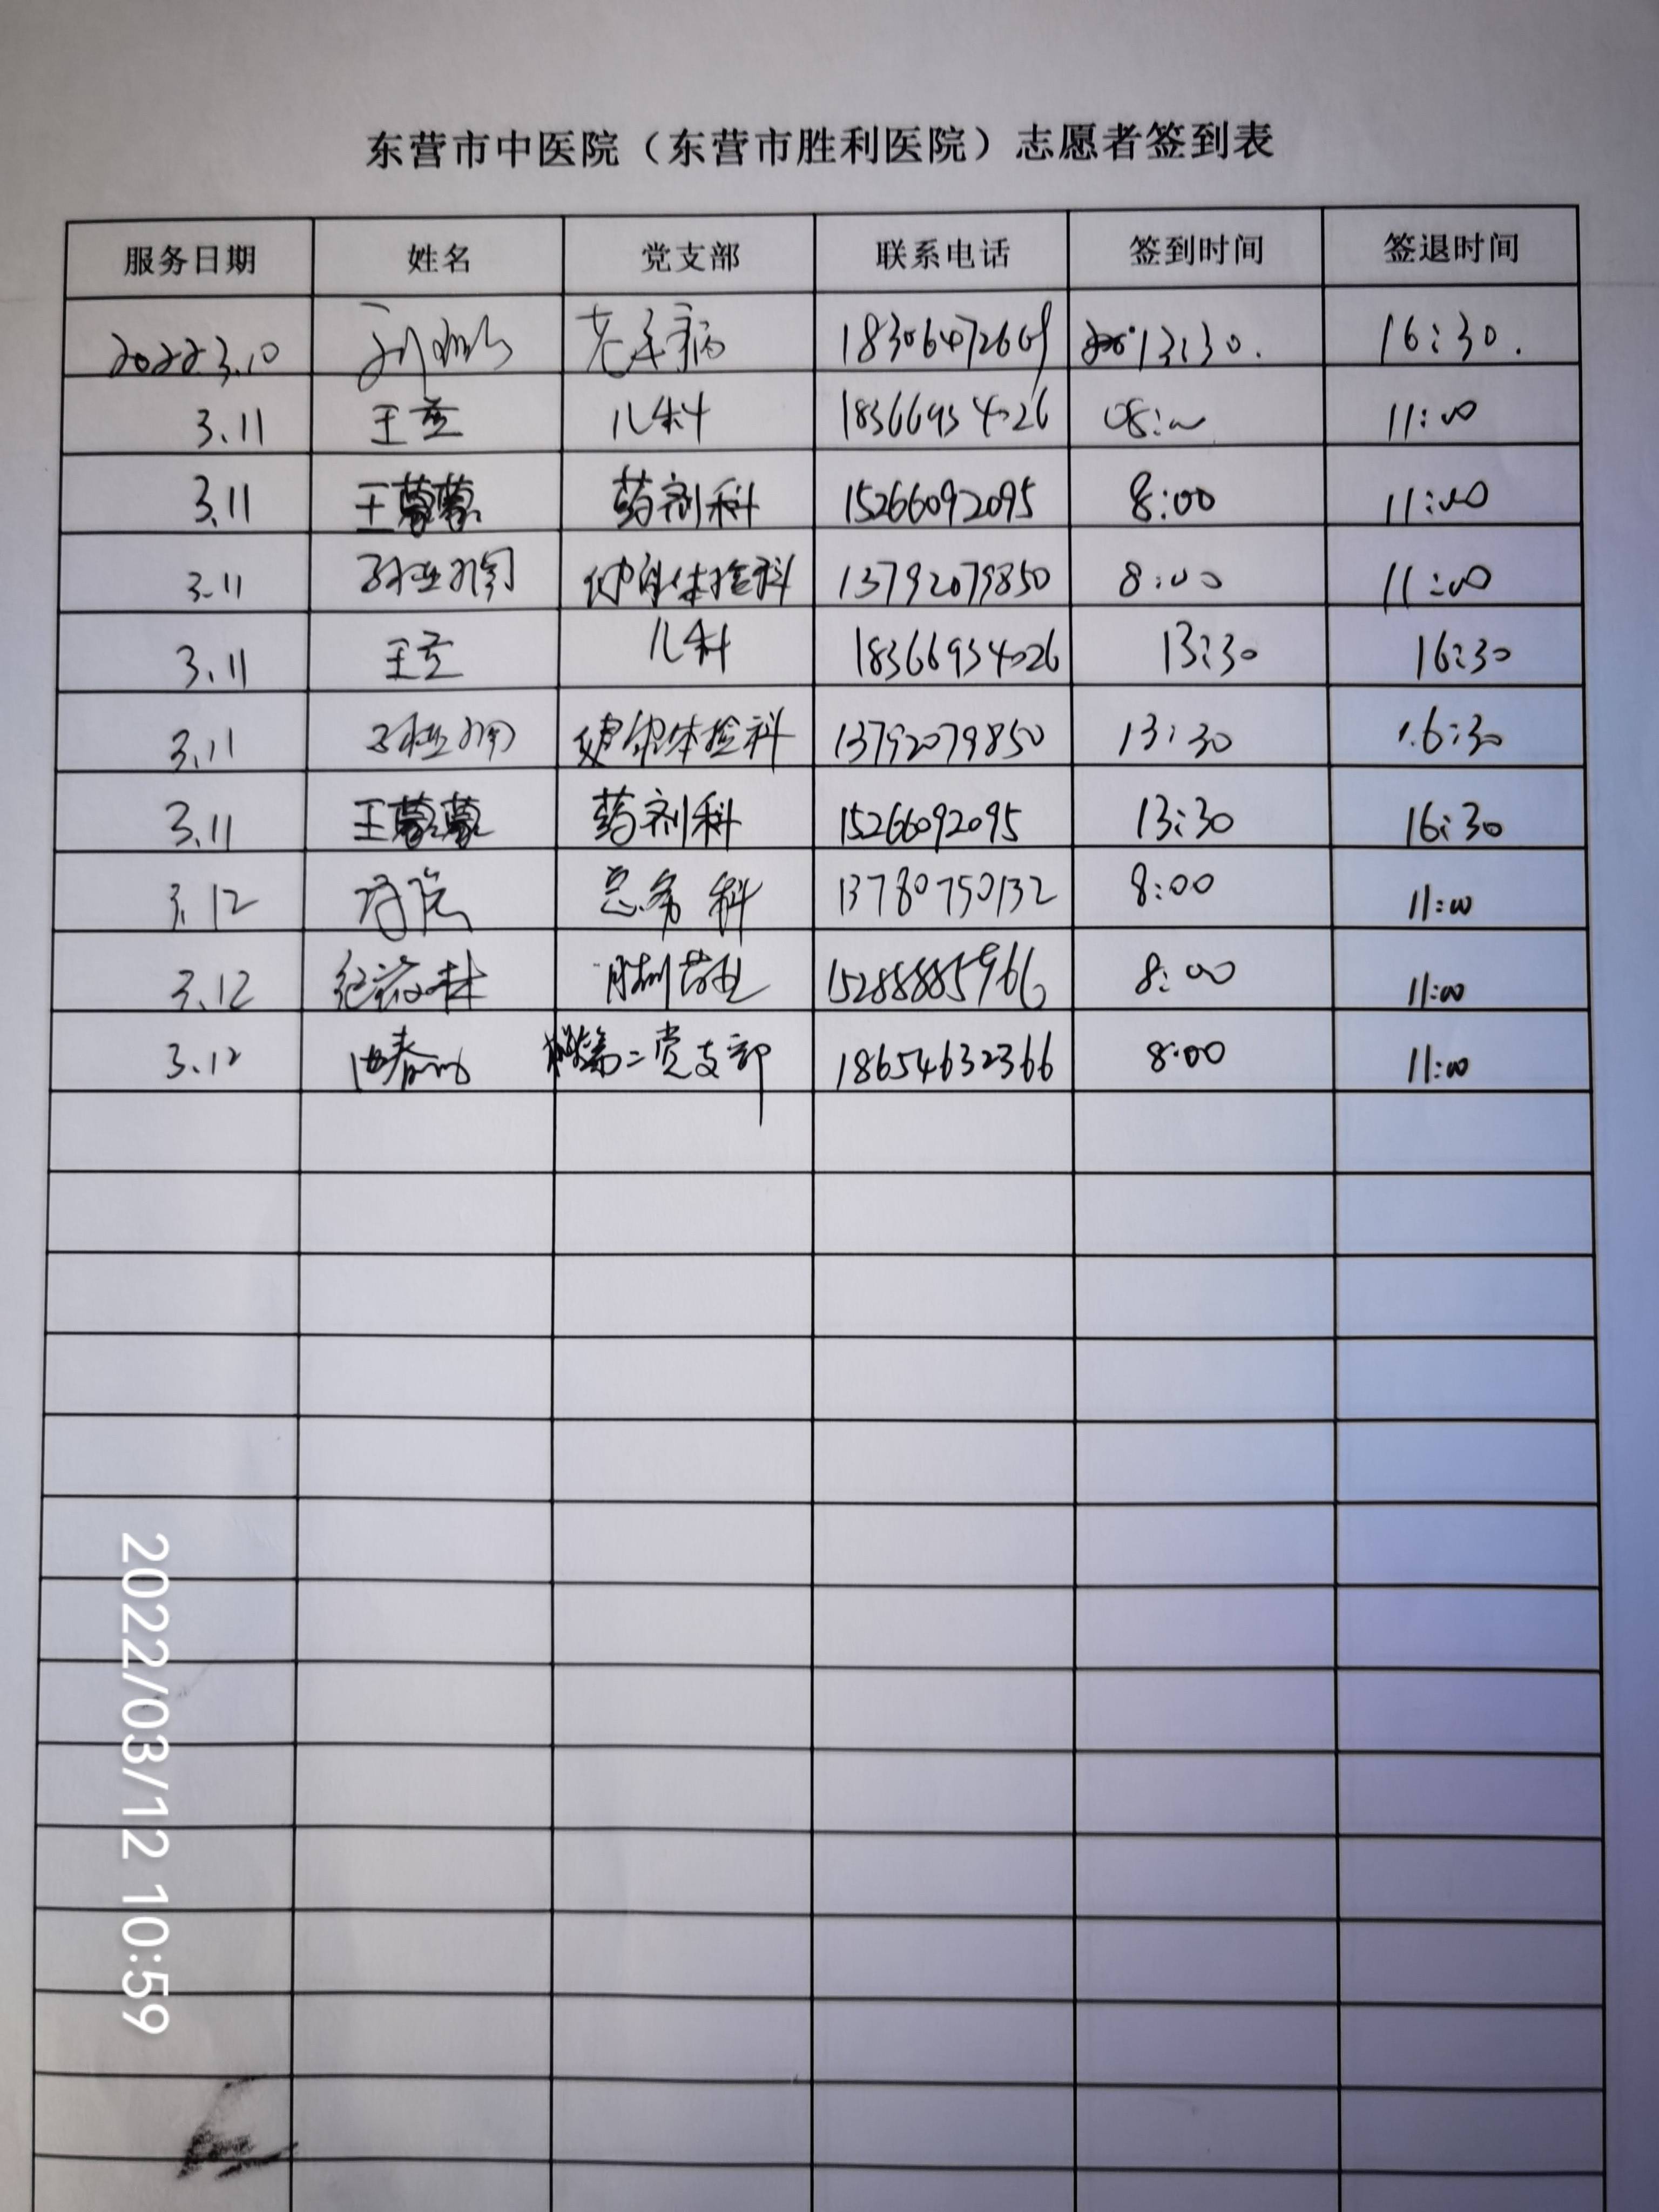 东营市中医院（东营市胜利医院）志愿者签到表
服务日期 姓名 党支部 联系电话 签到时间 签退时间
2022.3.10 老年病 13:30. 16:30.
3.11 王 儿科 18366934026 08:00 11:00
3.11 王蒙蒙 药剂科 15266092095 8:00 11:00
3.11 体检科 13792079850 8:00 11:00
3.11 王 儿科 18366934026 13:30 16:30
3.11 健康体检科 13792079850 13:30 16:30
3.11 王蒙蒙 药剂科 15266092095 13:30 16:30
3.12 总务科 13780750132 8:00 11:00
3.12 纪 胜利药业 15288885966 8:00 11:00
3.12 第二党支部 18654632366 8:00 11:00
2022/03/12 10:59